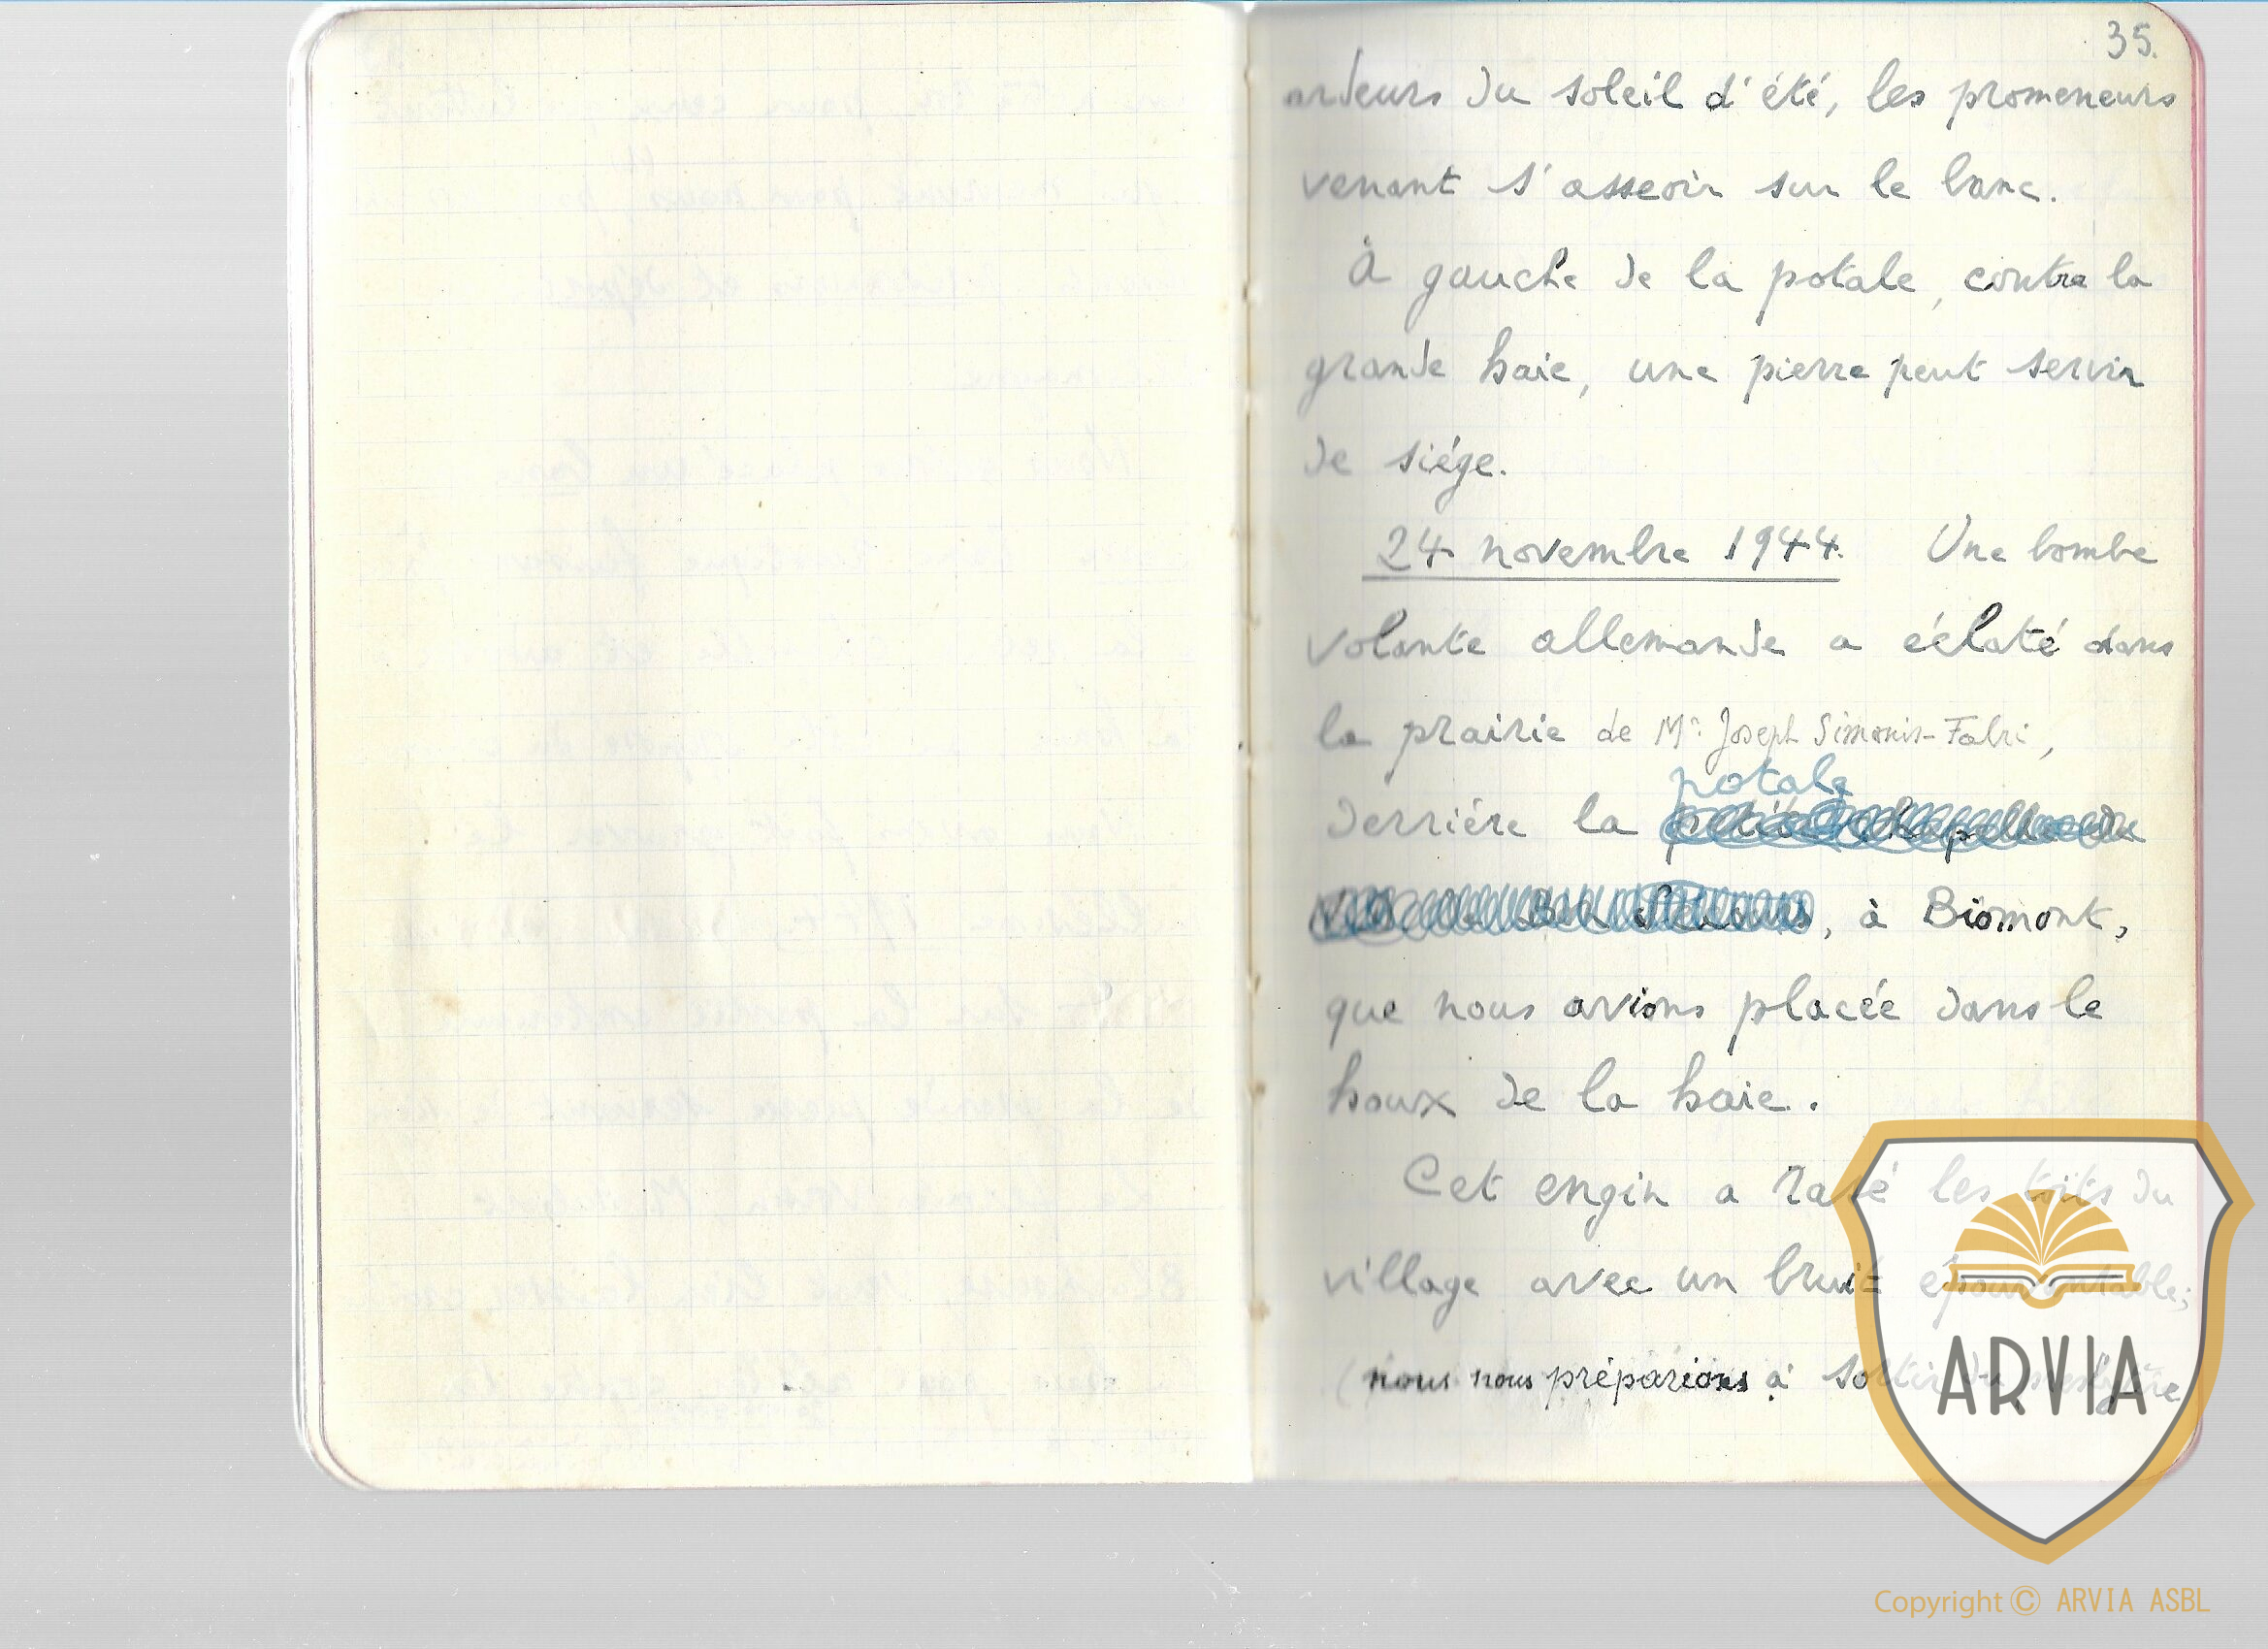 35.
ardeurs du soleil d'été, les promeneurs
venant s'asseoir sur le banc.
À gauche de la potale, contre la
grande haie, une pierre peut servir
de siége.
24 novembre 1944. Une bombe
volante allemande a éclaté dans
la prairie de Mr. Joseph Simonis-Fabri,
potale
derriére la petite chapelle du
de Bon Secours, à Biomont,
que nous avions placée dans le
houx de la haie.
Cet engin a rasé les toits du
village avec un bruit épouvantable;
(nous nous préparions à sortir du presbytère
ARVIA
Copyright © ARVIA ASBL